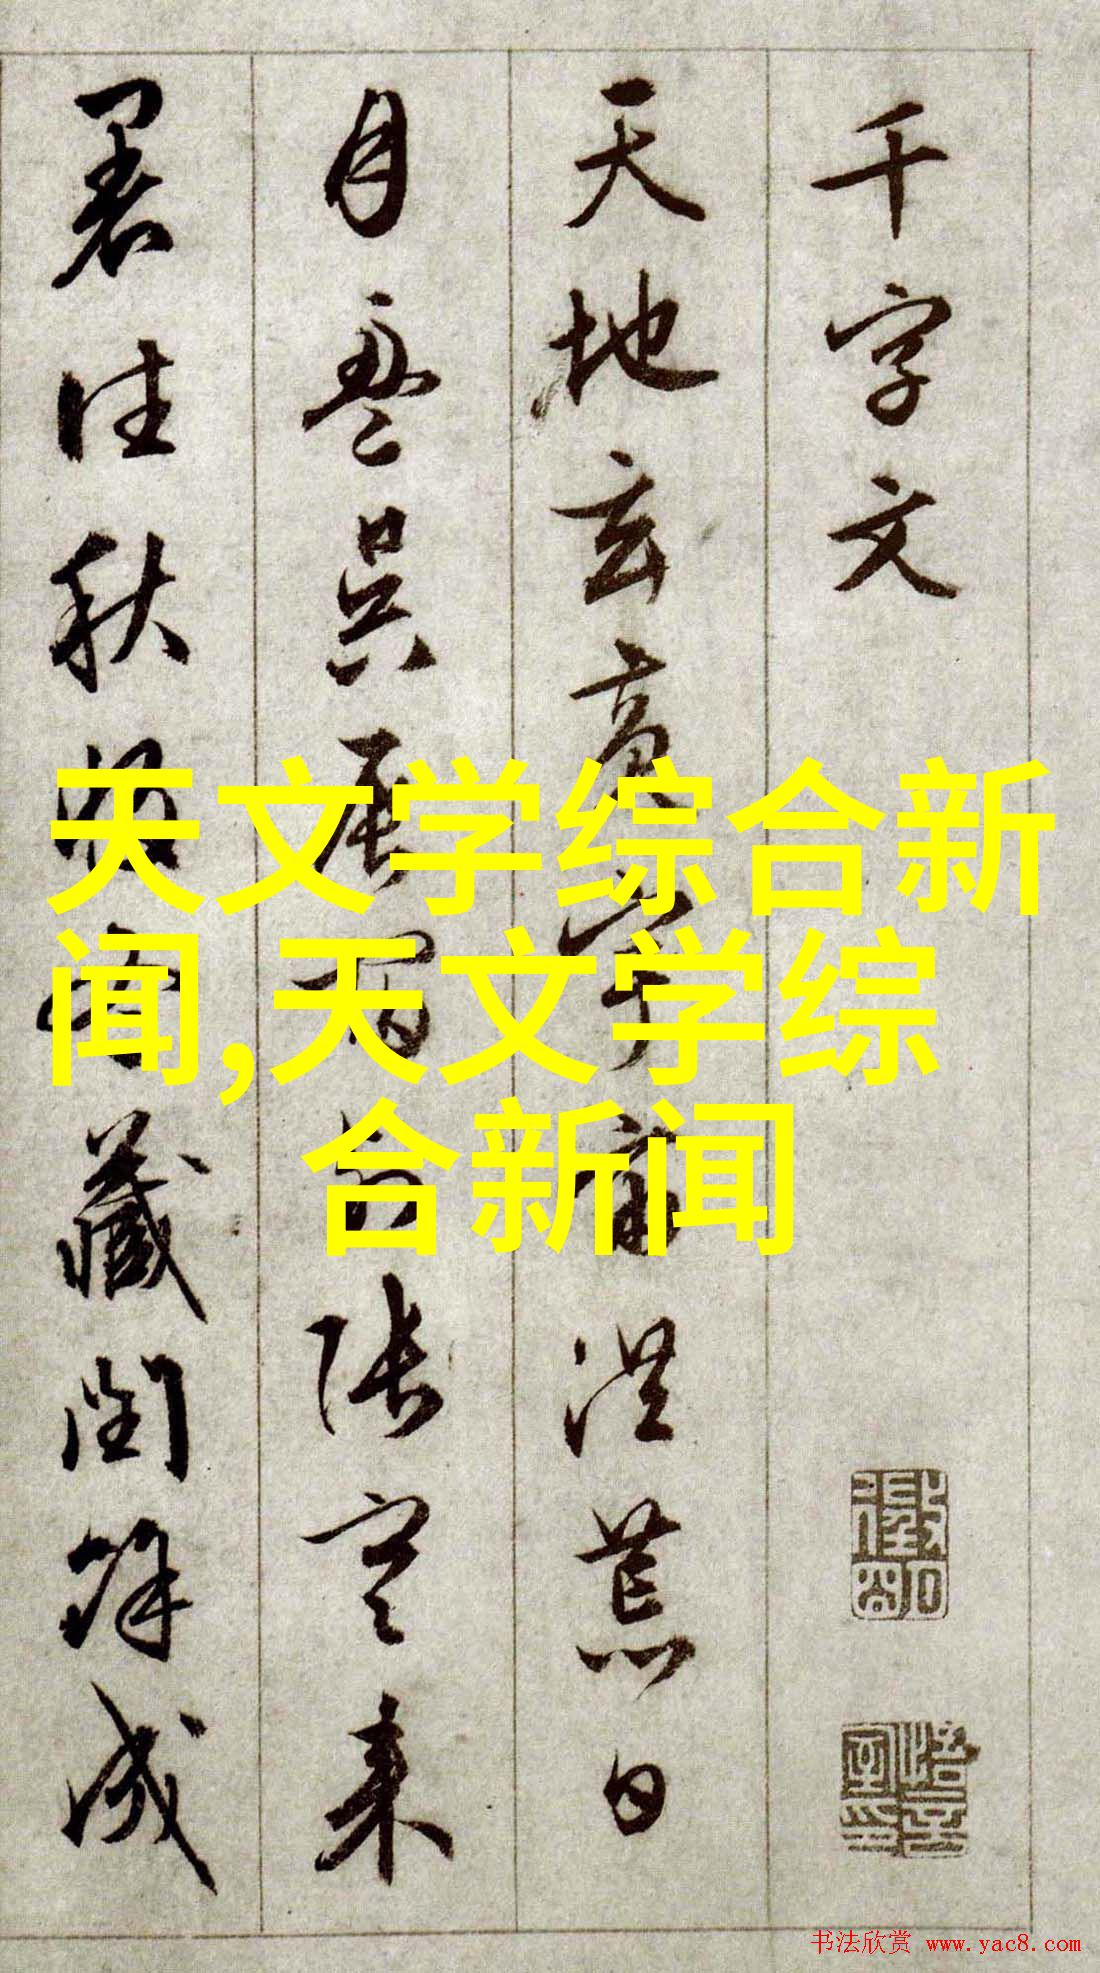 千字文
天地玄黄宇宙洪荒日
月盈昃辰宿列张寒来
暑往秋收冬藏闰馀成
天文学综合新
闻,天文学综
合新闻
书法欣赏 www.yac8.com